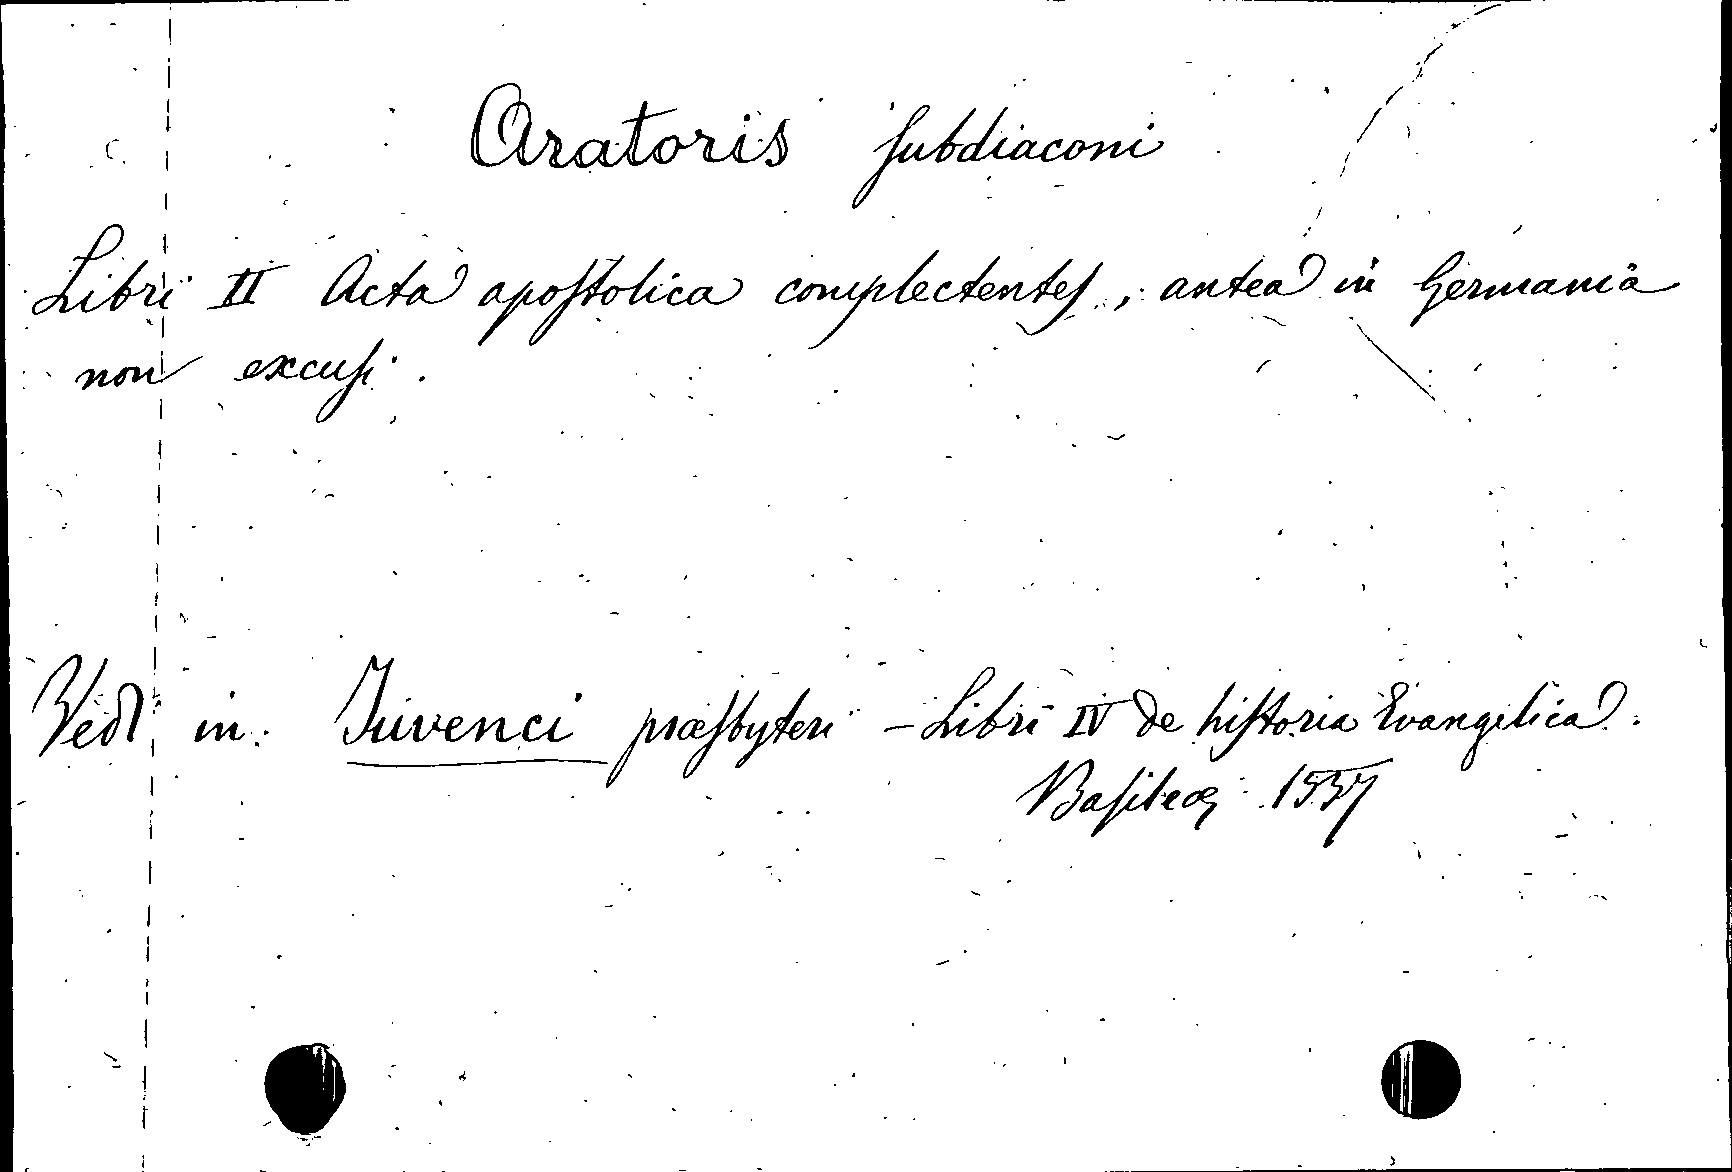 Aratoris ſubdiaconi
Libri II Acta apoſtolica complectenteſ, antea in Germania
non excuſi.
Vedi in: Juvenci præſbyteri – Libri IV de hiſtoria Evangelica.
Baſileæ 1537